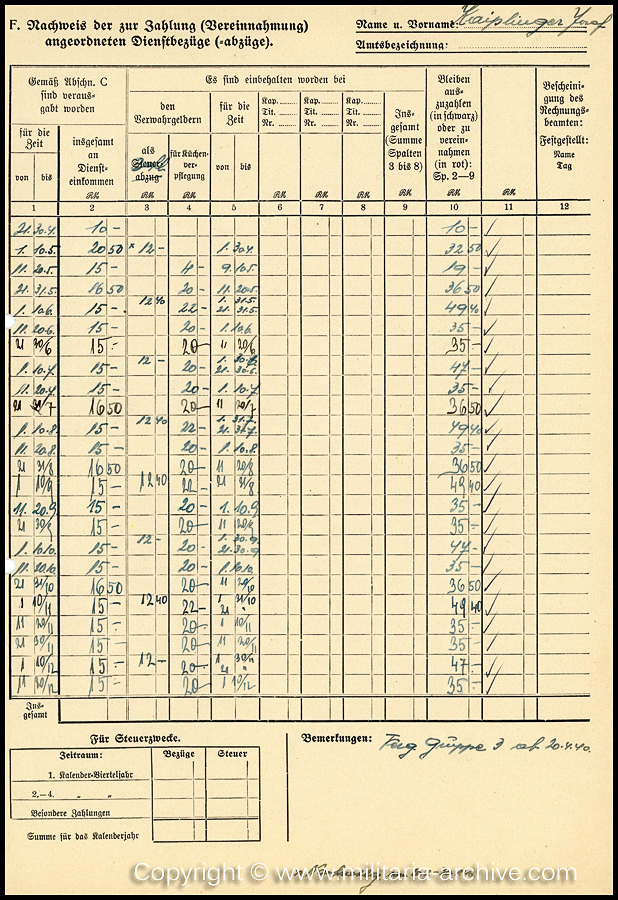 F. Nachweis der zur Zahlung (Vereinnahmung)
angeordneten Dienstbezüge (-abzüge).
Name u. Vorname: Kaiplinger Josef
Amtsbezeichnung:
Gemäß Abschn. C
sind veraus-
gabt worden
Es sind einbehalten worden bei
Bleiben
aus-
zuzahlen
(in schwarz)
oder zu
verein-
nahmen
(in rot):
Sp. 2—9
Bescheini-
gung des
Rechnungs-
beamten:
Festgestellt:
Name
Tag
für die
Zeit
von bis
insgesamt
an
Dienst-
einkommen
RM
den
Verwahrgeldern
als
Steuer-
abzug
RM
für Küchen-
ver-
pflegung
RM
für die
Zeit
von bis
Kap.
Tit.
Nr.
RM
Kap.
Tit.
Nr.
RM
Kap.
Tit.
Nr.
RM
Ins-
gesamt
(Summe
Spalten
3 bis 8)
RM
RM
RM
1 2 3 4 5 6 7 8 9 10 11 12
21. 30.4. 10 – 10 – ✓
1. 10.5. 20 50 × 12 – 1. 30.4. 32 50 ✓
11. 20.5. 15 – 4 – 9. 10.5. 19 – ✓
21. 31.5. 16 50 20 – 11. 20.5. 36 50 ✓
1. 10.6. 15 – 12 40 22 – 1. 31.5. 21. 31.5. 49 40 ✓
11. 20.6. 15 – 20 – 1. 10.6. 35 – ✓
21 30/6 15 – 20 – 11 20/6 35 – ✓
1. 10.7. 15 – 12 – 20 – 1. 30.6. 21. 30.6. 47 – ✓
11. 20.7. 15 – 20 – 1. 10.7. 35 – ✓
21 31/7 16 50 20 – 11 20/7 36 50 ✓
1. 10.8. 15 – 12 40 22 – 1. 31.7. 21. 31.7. 49 40 ✓
11. 20.8. 15 – 20 – 1. 10.8. 35 – ✓
21 31/8 16 50 20 – 11 20/8 36 50 ✓
1 10/9 15 – 12 40 22 – 21 31/8 49 40 ✓
11. 20.9. 15 – 20 – 1. 10.9. 35 – ✓
21 30/9 15 – 20 – 11 20/9 35 – ✓
1. 10.10. 15 – 12 – 20 – 1. 30.9. 21. 30.9. 47 – ✓
11. 20.10. 15 – 20 – 1. 10.10. 35 – ✓
21 31/10 16 50 20 – 11 20/10 36 50 ✓
1 10/11 15 – 12 40 22 – 1 31/10 21 " 49 40 ✓
11 20/11 15 – 20 – 1 10/11 35 – ✓
21 30/11 15 – 20 – 11 20/11 35 – ✓
1 10/12 15 – 12 – 20 – 1 30/11 21 " 47 – ✓
11 20/12 15 – 20 – 1 10/12 35 – ✓
Ins-
gesamt
Für Steuerzwecke.
Zeitraum: Bezüge Steuer
1. Kalender-Vierteljahr
2.—4. " "
Besondere Zahlungen
Summe für das Kalenderjahr
Bemerkungen: Gruppe 3 ab 20.4.40.
Copyright © www.militaria-archive.com